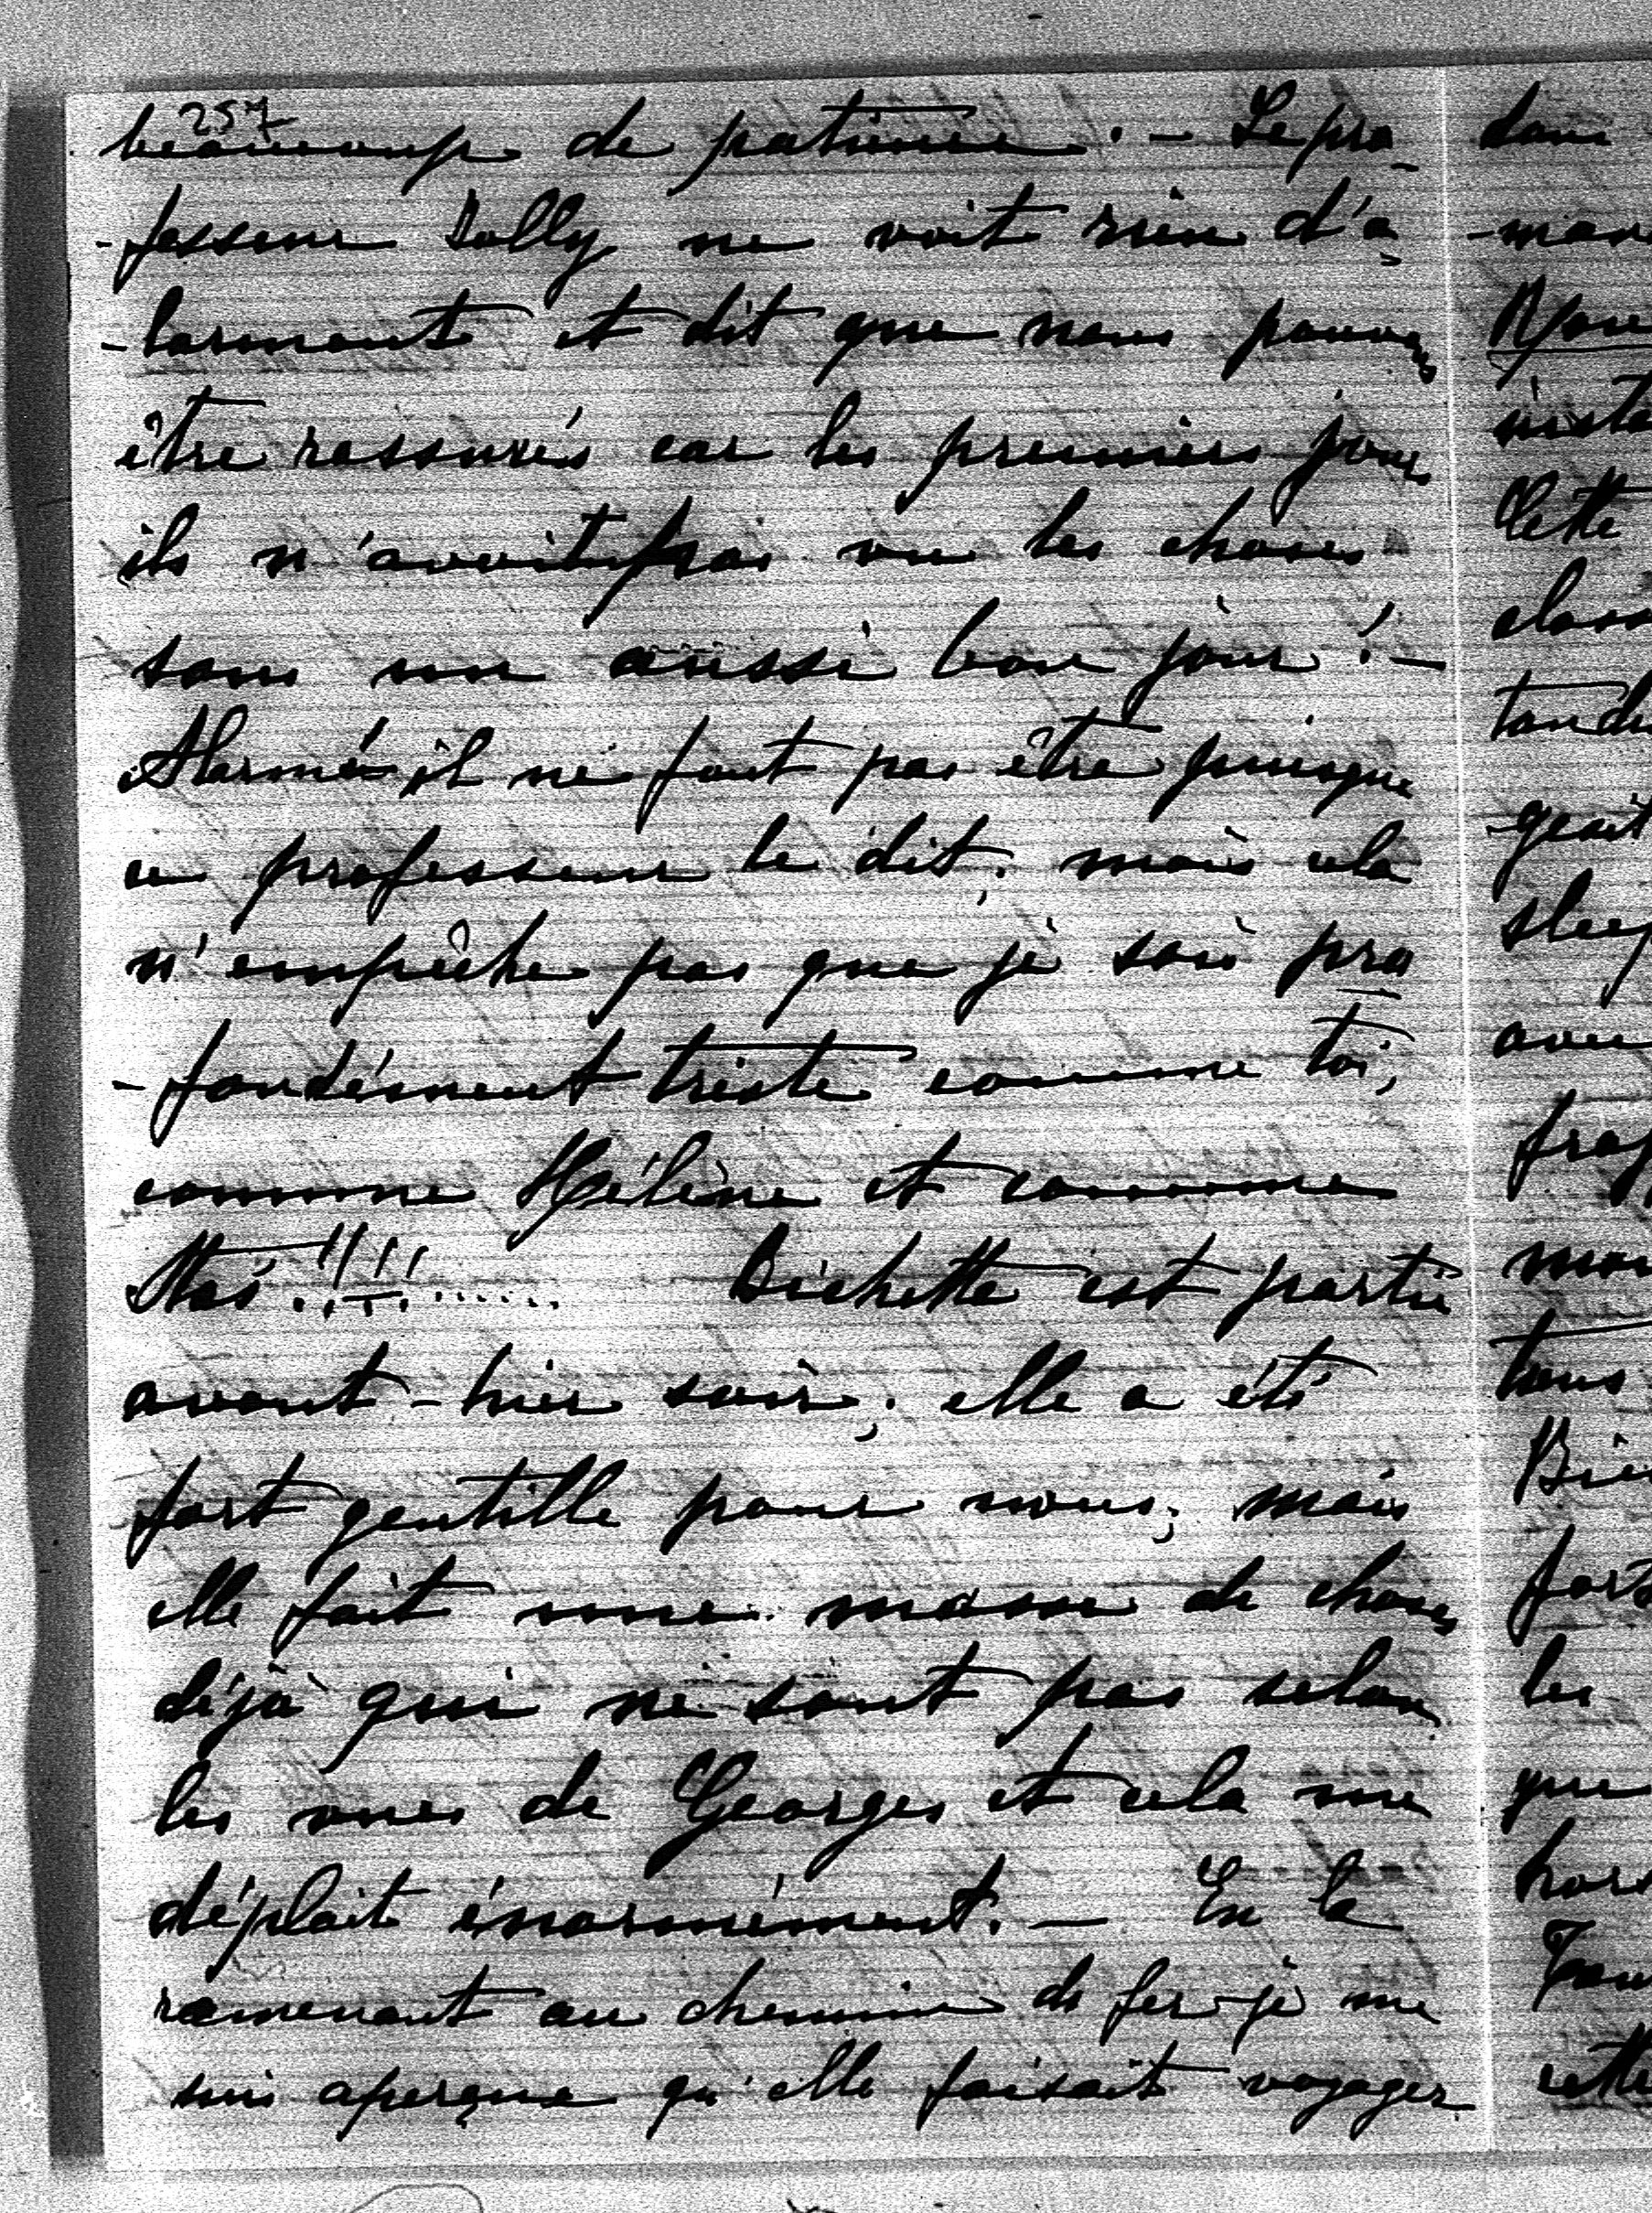 257
beaucoup de patience. — Le pro
-fesseur Dolly ne voit rien d'a
-larmant et dit que nous pouvons
être rassurés car les premiers jours
ils n'avait pas vu les choses
sous un aussi bon jour! —
Alarmé il ne faut pas être puisque
ce professeur le dit; mais cela
n'empêche pas que je sois pro
-fondément triste comme toi,
comme Hélène et comme
Bichette est partie
avant-hier soir; elle a été
fort gentille pour nous; mais
elle fait une masse de choses
déjà qui ne sont pas selon
les vues de Georges et cela me
déplait énormément. — En la
ramenant au chemin de fer je me
suis aperçue qu'elle faisait voyager